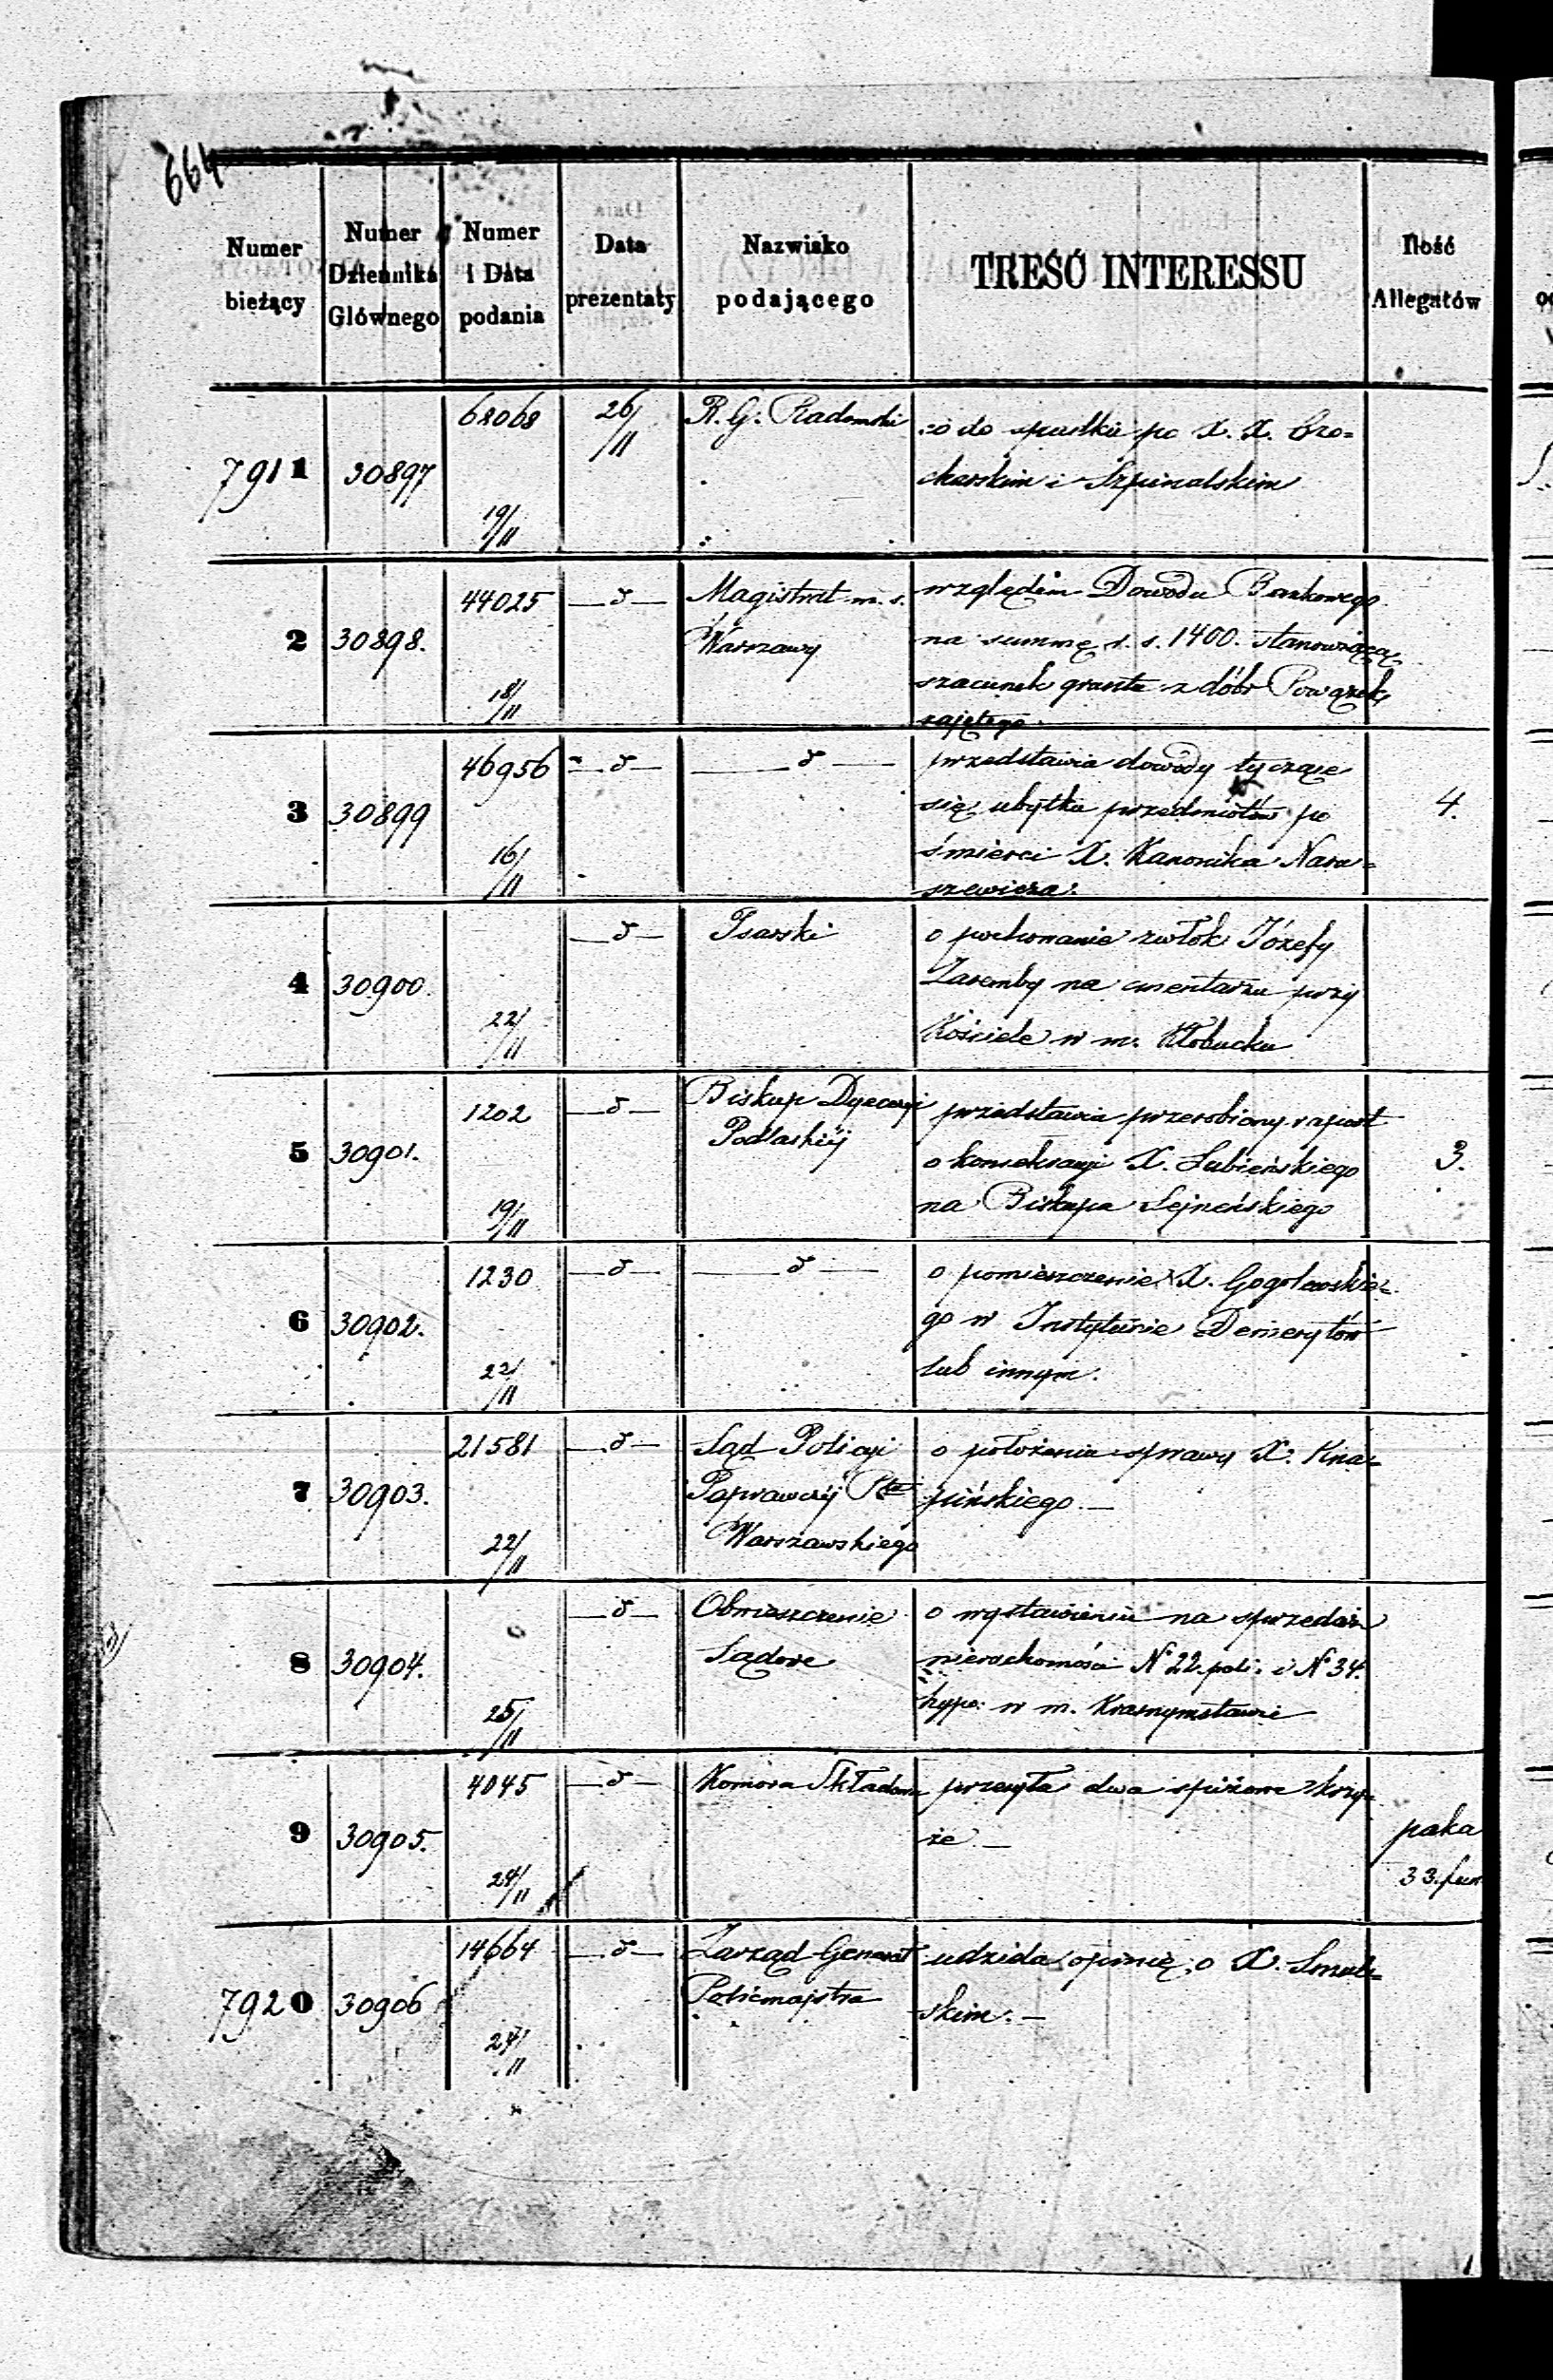 664
Numer bieżący | Numer Dziennika Głównego | Numer i Data podania | Data prezentaty | Nazwisko podającego | TREŚĆ INTERESSU | Ilość Allegatów
7911 | 30897 | 68068 19/11 | 26/11 | R. G. Radomski | co do spadku po X. X. Cro=
charskim i Szpinalskim
2 | 30898. | 44025 18/11 | —d— | Magistrat m. s. Warszawy | względem Dowodu Bankowego
na summę r. s. 1400. stanowiącą
szacunek gruntu z dóbr Powązek
zajętego.
3 | 30899 | 46956 16/11 | —d— | —d— | przedstawia dowody tyczące | 4.
się ubytku przedmiotów po
śmierci X. Kanonika Naru=
szewicza.
4 | 30900. | 22/11 | —d— | Psarski | o pochowanie zwłok Józefy
Zaremby na cmentarzu przy
Kościele w m. Kłobucku
5 | 30901. | 1202 19/11 | —d— | Biskup Dyecezyi Podlaskiéj | przedstawia przerobiony raport | 3.
o konsekracyi X. Łubieńskiego
na Biskupa Sejneńskiego
6 | 30902. | 1230 22/11 | —d— | —d— | o pomieszczenie X. Gogolewskie=
go w Instytucie Demerytów
lub innym.
7 | 30903. | 21581 22/11 | —d— | Sąd Policyi Poprawczéj Ptu Warszawskiego | o położeniu sprawy X. Kna=
pińskiego.—
8 | 30904. | 25/11 | —d— | Obwieszczenie Sądowe | o wystawieniu na sprzedaż
nieruchomości N 22. poli. i N 34.
hypo: w m. Krasnymstawie
9 | 30905. | 4045 24/11 | —d— | Komora Składowa | przesyła dwa spiżowe krzy= | paka
że.— | 33. fun
7920 | 30906 | 14664 24/11 | —d— | Zarząd Generał Policmajstra | udziela opinię o X. Smul=
skim.—